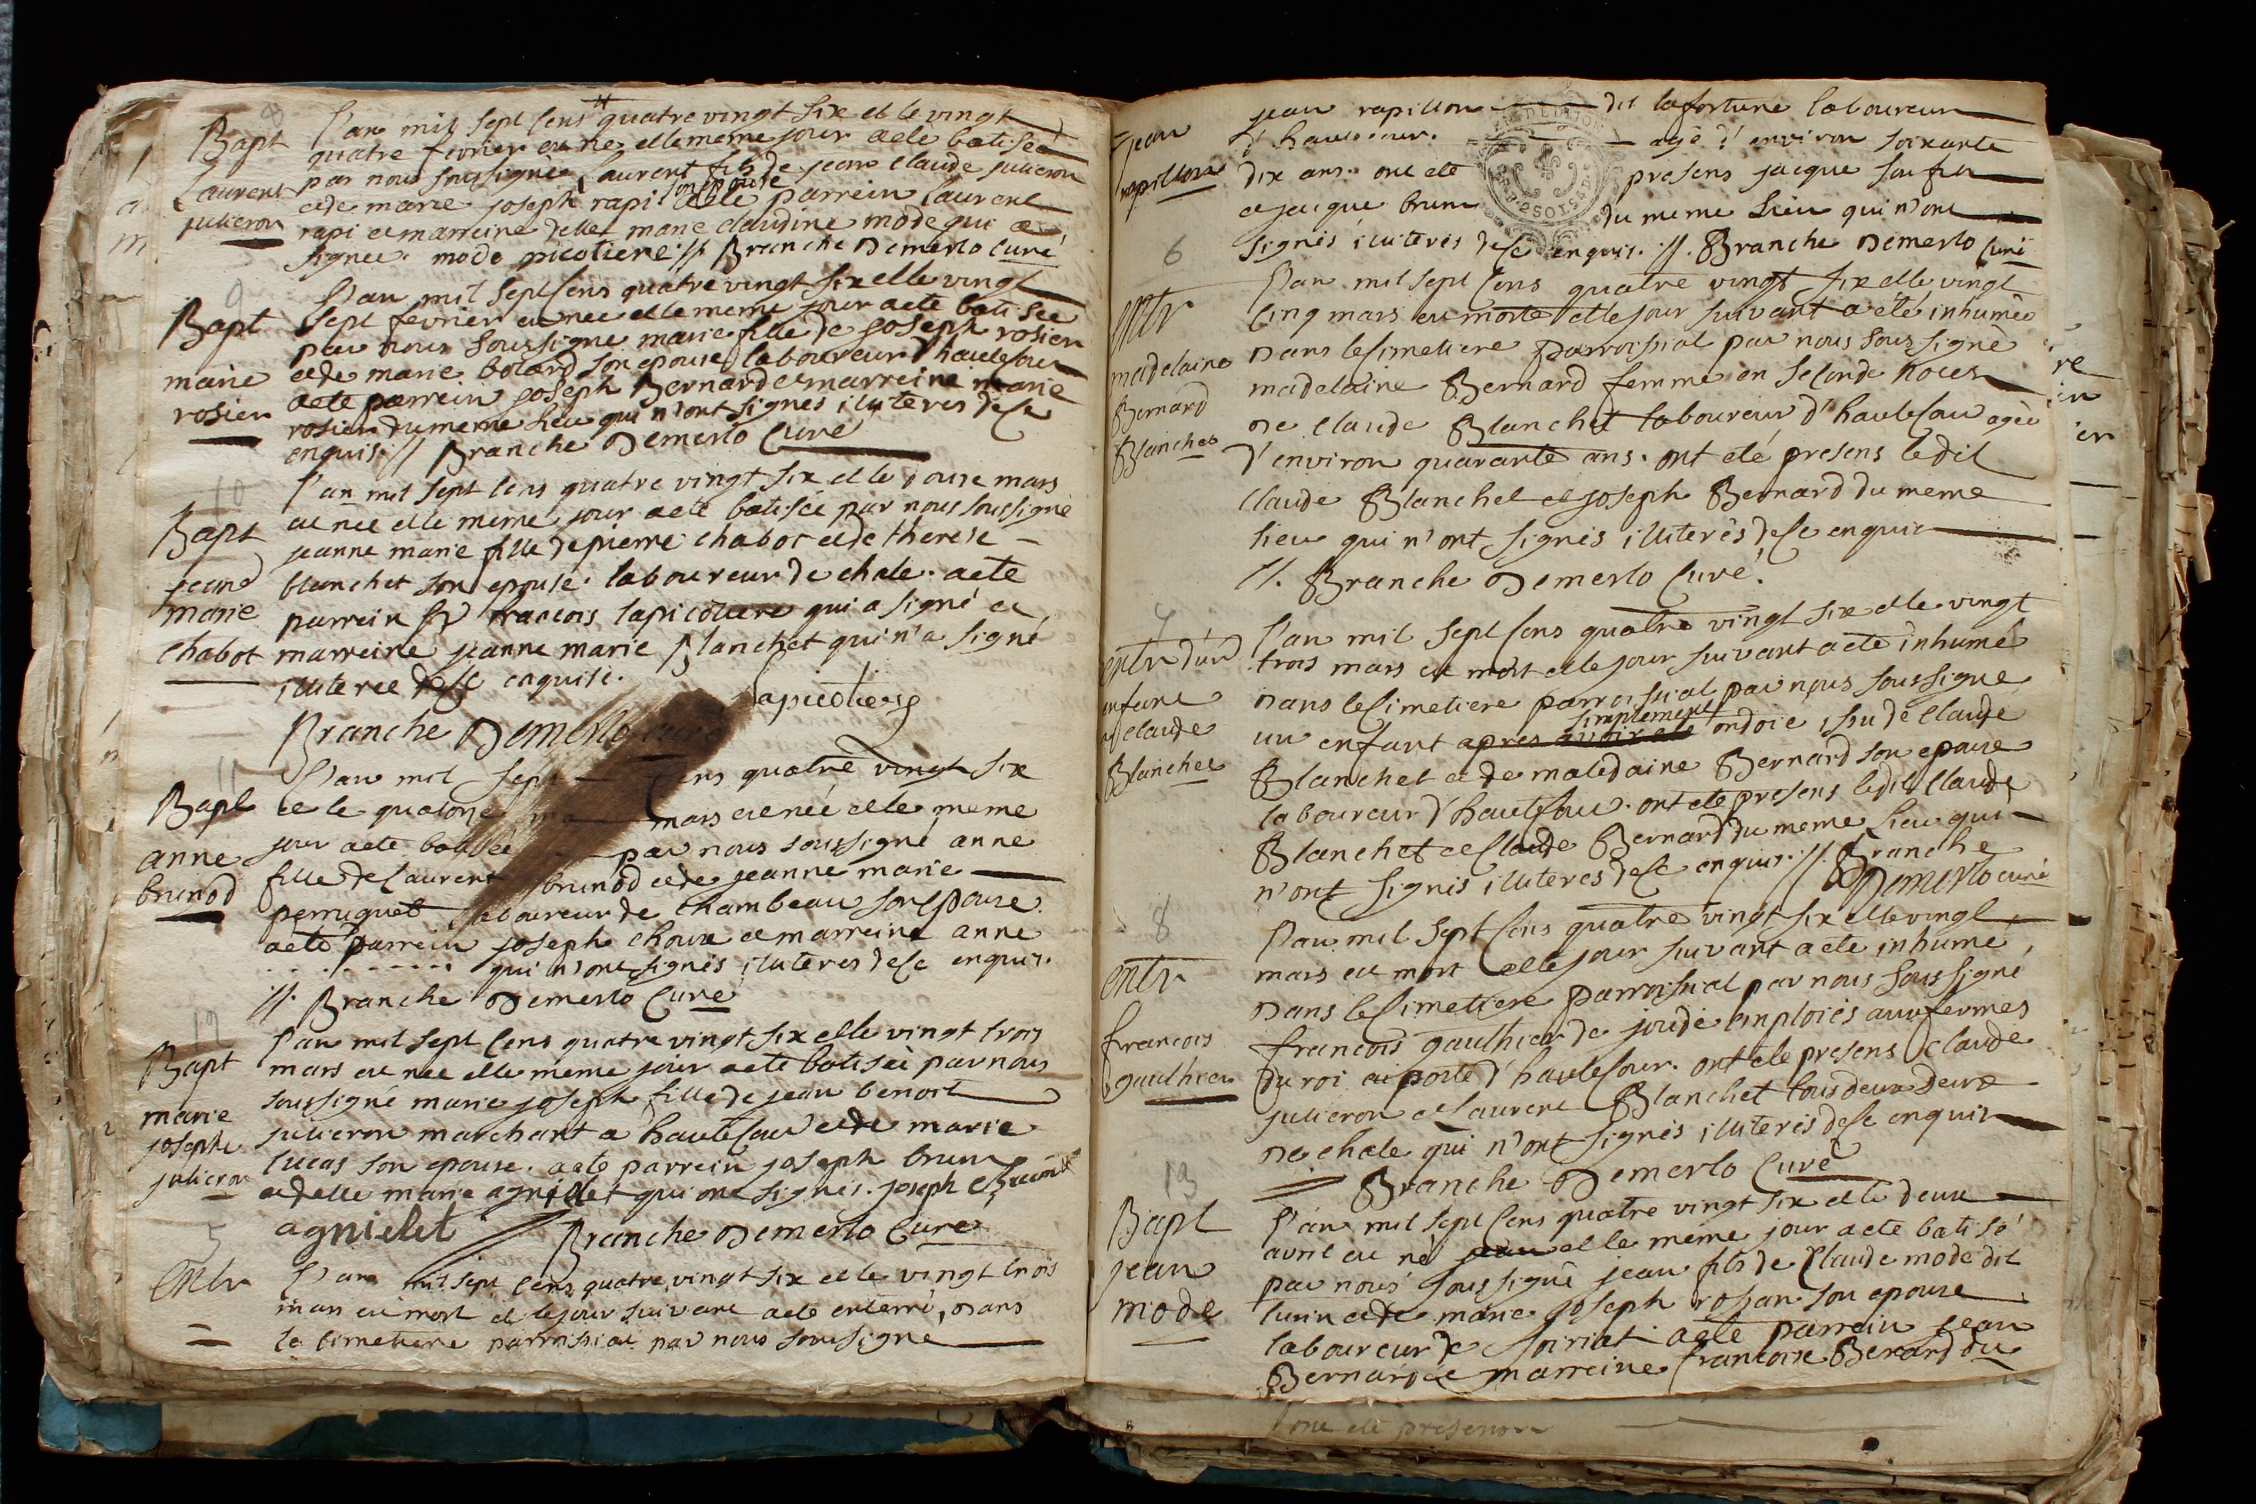 8
Bapt
Laurent
julieron
L'an mil sept cens quatre vingt six et le vingt
quatre fevrier est né et le meme jour a eté batisée
par nous soussigné Laurent fils de jean claude julieron
et de marie joseph rapi son epouse a eté parrein laurent
rapi et marreine delle marie claudine mode qui a
signée. mode picotiere .//. Branche Demerlo Curé
9
Bapt
marie
rosier
L'an mil sept cens quatre vingt six et le vingt
sept fevrier est née et le meme jour a eté batisée
par nous soussigné marie fille de joseph rosier
et de marie bolard son epouse laboureur d'hautecour
a eté parrein joseph Bernard et marreine marie
rosier du meme lieu qui n'ont signés illiteres de ce
enquis .// Branche Demerlo Curé
10
Bapt
jeanne
marie
chabot
L'an mil sept cens quatre vingt six et le douse mars
est née et le meme jour a eté batisée par nous soussigné
jeanne marie fille de pierre chabot et de therese
blanchet son epouse. laboureur de chale. a eté
parrein Sr francois lapicotiere qui a signé et
marreine jeanne marie Blanchet qui n'a signé
illiteree de ce enquise.
Lapicotiere
Branche Demerlo curé
11
Bapt
anne
brunod
L'an mil sept cens quatre vingt six
et le quatorse mars est née et le meme
jour a eté batisée par nous soussigné anne
fille de laurent brunod et de jeanne marie
perruquet laboureur de Chambeau son epouse
a eté parrein joseph choux et marreine anne
. . . . . . . . . . qui n'ont signés illiteres de ce enquis.
.//. Branche Demerlo Curé
12
Bapt
marie
josephe
julieron
L'an mil sept cens quatre vingt six et le vingt trois
mars est née et le meme jour a eté batisée par nous
soussigné marie joseph fille de jean benoit
julieron marchant a hautecour et de marie
lucas son epouse. a eté parrein joseph brun
et delle marie agnielet qui ont signés. joseph Brun
agnielet // Branche Demerlo Curé
5
entr
L'an mil sept cens quatre vingt six et le vingt trois
mars est mort et le jour suivant a eté enterré, dans
le cimetiere parroissial par nous soussigné
jean
rapillon
jean rapillon dit lafortune laboureur
d'hautecour. agé d'environ soixante
dix ans. ont eté presens jacque son fils
et jacque brun du meme lieu qui n'ont
signés illiterés de ce enquis. .//. Branche Demerlo Curé
6
entr
madelaine
Bernard
Blanchet
L'an mil sept cens quatre vingt six et le vingt
cinq mars est morte et le jour suivant a eté inhumée
dans le cimetiere parroissial par nous soussigné
madelaine Bernard femme en seconde noces
de claude Blanchet laboureur d'hautecour agée
d'environ quarante ans. ont eté presens ledit
claude Blanchet et joseph Bernard du meme
lieu qui n'ont signés illiterés de ce enquis
.//. Branche Demerlo Curé.
7
entr d'un
enfant
de claude
Blanchet
L'an mil sept cens quatre vingt six et le vingt
trois mars est mort et le jour suivant a eté inhumé
dans le cimetiere parroissial par nous soussigné
un enfant apres avoir eté simplement ondoié issu de Claude
Blanchet et de maledaine Bernard son epouse
laboureur d'hautecour. ont eté presens ledit Claude
Blanchet et Claude Bernard du meme lieu qui
n'ont signés illiteres de ce enquis .//. Branche
Demerlo curé
8
entr
francois
gaulhier
L'an mil sept cens quatre vingt six et le vingt
mars est mort et le jour suivant a eté inhumé,
dans le cimetiere parroissial par nous soussigné
francois gaulhier de joude emploiés aux fermes
du roi au poste d'hautecour. ont eté presens Claude
julieron et laurent Blanchet tous deux deux
de chale qui n'ont signés illiterés de ce enquis
// Branche Demerlo Curé
13
Bapt
jean
mode
L'an mil sept cens quatre vingt six et le deux
avril est né jean et le meme jour a eté batisé
par nous soussigné jean fils de Claude mode dit
et de marie joseph rosan son epouse
laboureur de soiriat a eté parrein jean
Bernard et marreine francoise Berard du
ont eté presens